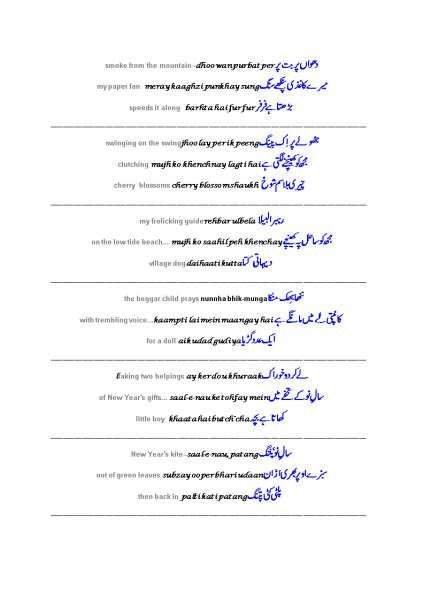 smoke from the mountain -dhoowan purbat per دھواں پربت پر
my paper fan meray kaaghzi punkhay sung میرے کاغذی پنکھے سنگ
speeds it along barhta hai fur fur بڑھتا ہے فرفر
swinging on the swing jhoolay per ik peeng جھولے پر اک پینگ
clutching mujh ko khenchnay lagti hai مجھ کو کھینچنے لگتی ہے
cherry blossoms cherry blossom shaukh چیری بلاسم شوخ
my frolicking guide rehbar ulbela رہبر البیلا
on the low tide beach... mujh ko saahil peh khenchay مجھ کو ساحل پر کھینچے
village dog daihaati kutta دیہاتی کتا
the beggar child prays nunnha bhik-munga ننھا بھک منگا
with trembling voice... kaampti lai mein maangay hai کانپتی لے میں مانگے ہے
for a doll aik udad gudiya ایک عدد گڑیا
taking two helpings ay ker dou khuraak لے کر دو خوراک
of New Year's gifts... saal-e-nau ke tohfay mein سالِ نو کے تحفے میں
little boy khaata hai butch'cha کھاتا ہے بچہ
New Year's kite--saal-e-nau, patang سالِ نو پتنگ
out of green leaves subzay ooper bhari udaan سبزے اوپر بھری اڑان
then back in palti kati patang پلٹی کٹی پتنگ